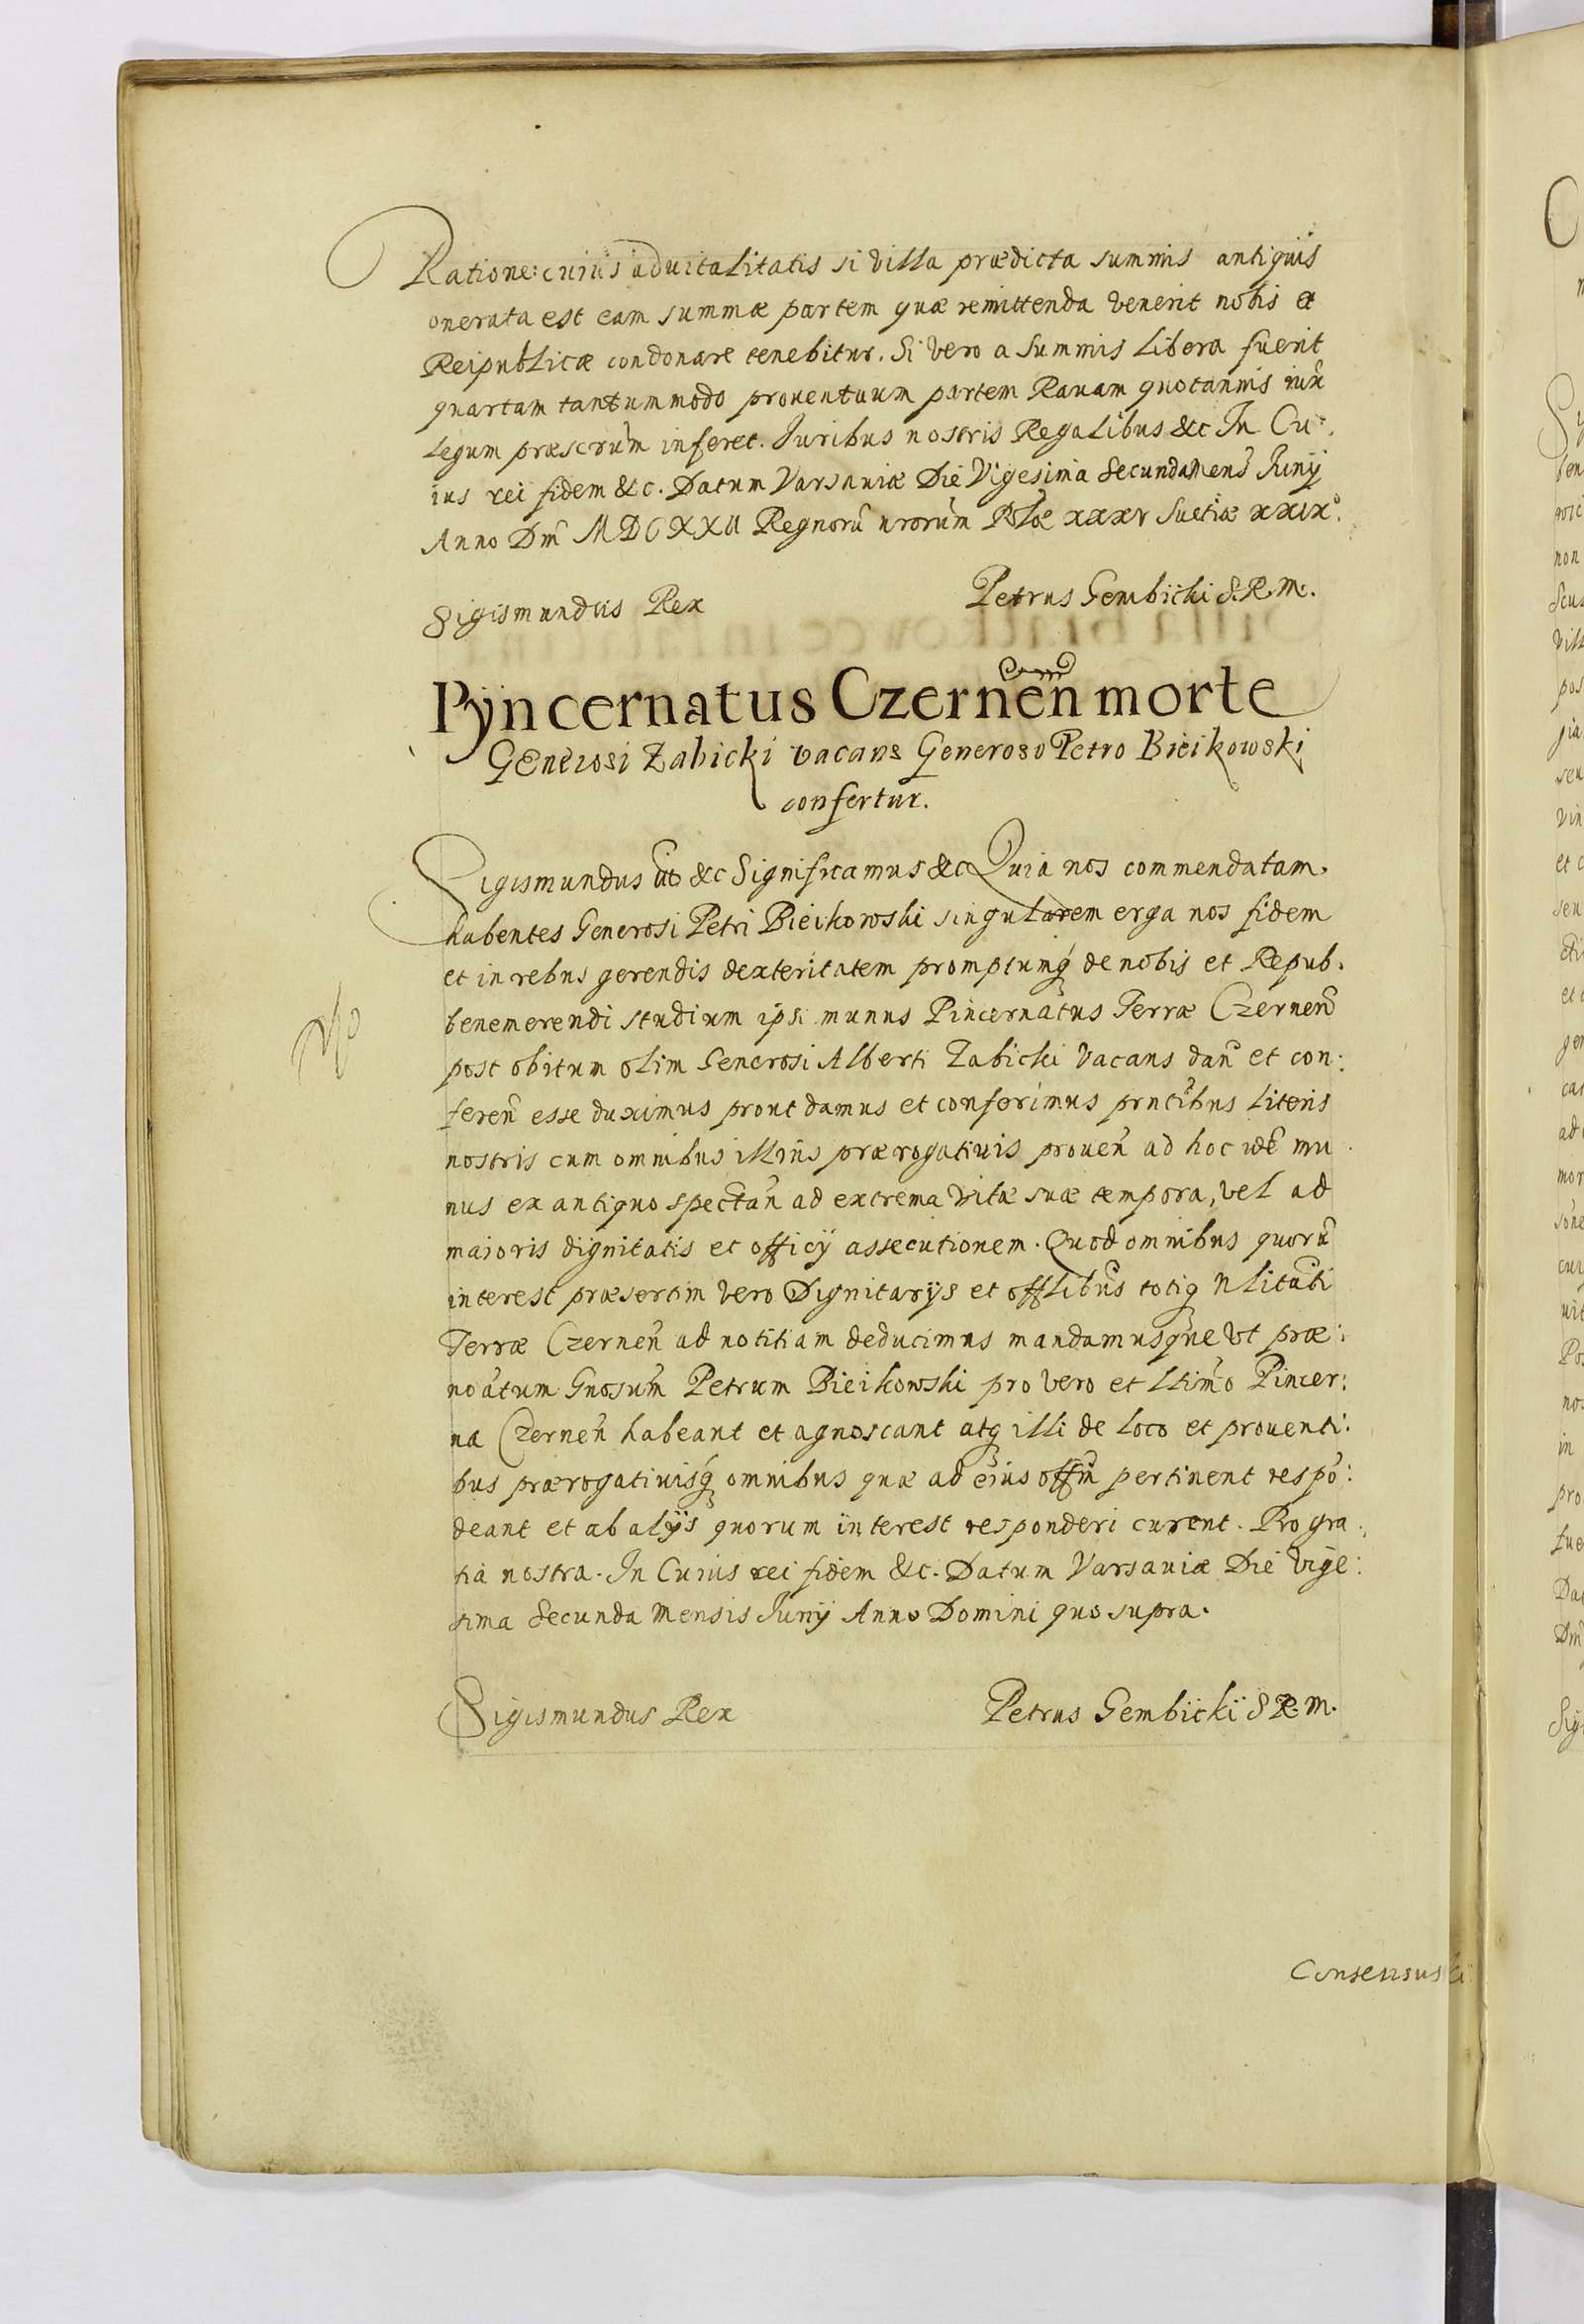 Ratione: cuius aduitalitatis si villa prædicta summis antiquis
onerata est eam summæ partem quæ remittenda venerit nobis et
Reipublicæ condonare tenebitur. Si vero a summis libera fuerit
quartam tantummodo prouentuum partem Rauam quotannis iux̃
legum præscrũm inferet. Iuribus nostris Regalibus &c In Cu:
ius rei fidem &c. Datum Varsauiæ Die Vigesima Secunda Menš Iunij
Anno Dm̃ MDCXXII Regnorũ nrorũm Polõæ xxxv Suetiæ xxix°.
Sigismundus Rex
Petrus Gembicki S.R.M.
Pÿncernatus Czerneñ morte
Generosi Zabicki vacans Generoso Petro Bieikowski
confertur.
Sigismundus &c Significamus &c Quia nos commendatam
habentes Generosi Petri Bieikowski singularem erga nos fidem
et in rebus gerendis dexteritatem promptumq́ de nobis et Repub.
benemerendi studium ipsi munus Pincernatus Terræ Czerneñ
post obitum olim Generosi Alberti Zabicki vacans dañ et con:
fereñ esse duximus prout damus et conferimus prntĩbus literis
nostris cum omnibus illius prærogatiuis proueñ ad hoc idẽ mu
nus ex antiquo spectañ ad extrema vitæ suæ tempora, vel ad
maioris dignitatis et officij assecutionem. Quod omnibus quorũ
interest præsertim vero Dignitarijs et offlibũs totiq Nlitãti
Terræ Czerneñ ad notitiam deducimus mandamusque vt præ:
noãtum Gnosũm Petrum Bieikowski pro vero et ltimõ Pincer:
na Czerneñ habeant et agnoscant atq illi de loco et prouenti:
bus prærogatiuisq́ omnibus quæ ad eius offm̃ pertinent respõ:
deant et ab alijs quorum interest responderi curent. Pro gra.
tia nostra. In Cuius rei fidem &c. Datum Varsauiæ Die vige:
sima Secunda Mensis Iunij Anno Domini quo supra.
Sigismundus Rex
Petrus Gembicki S R. M.
Consensus